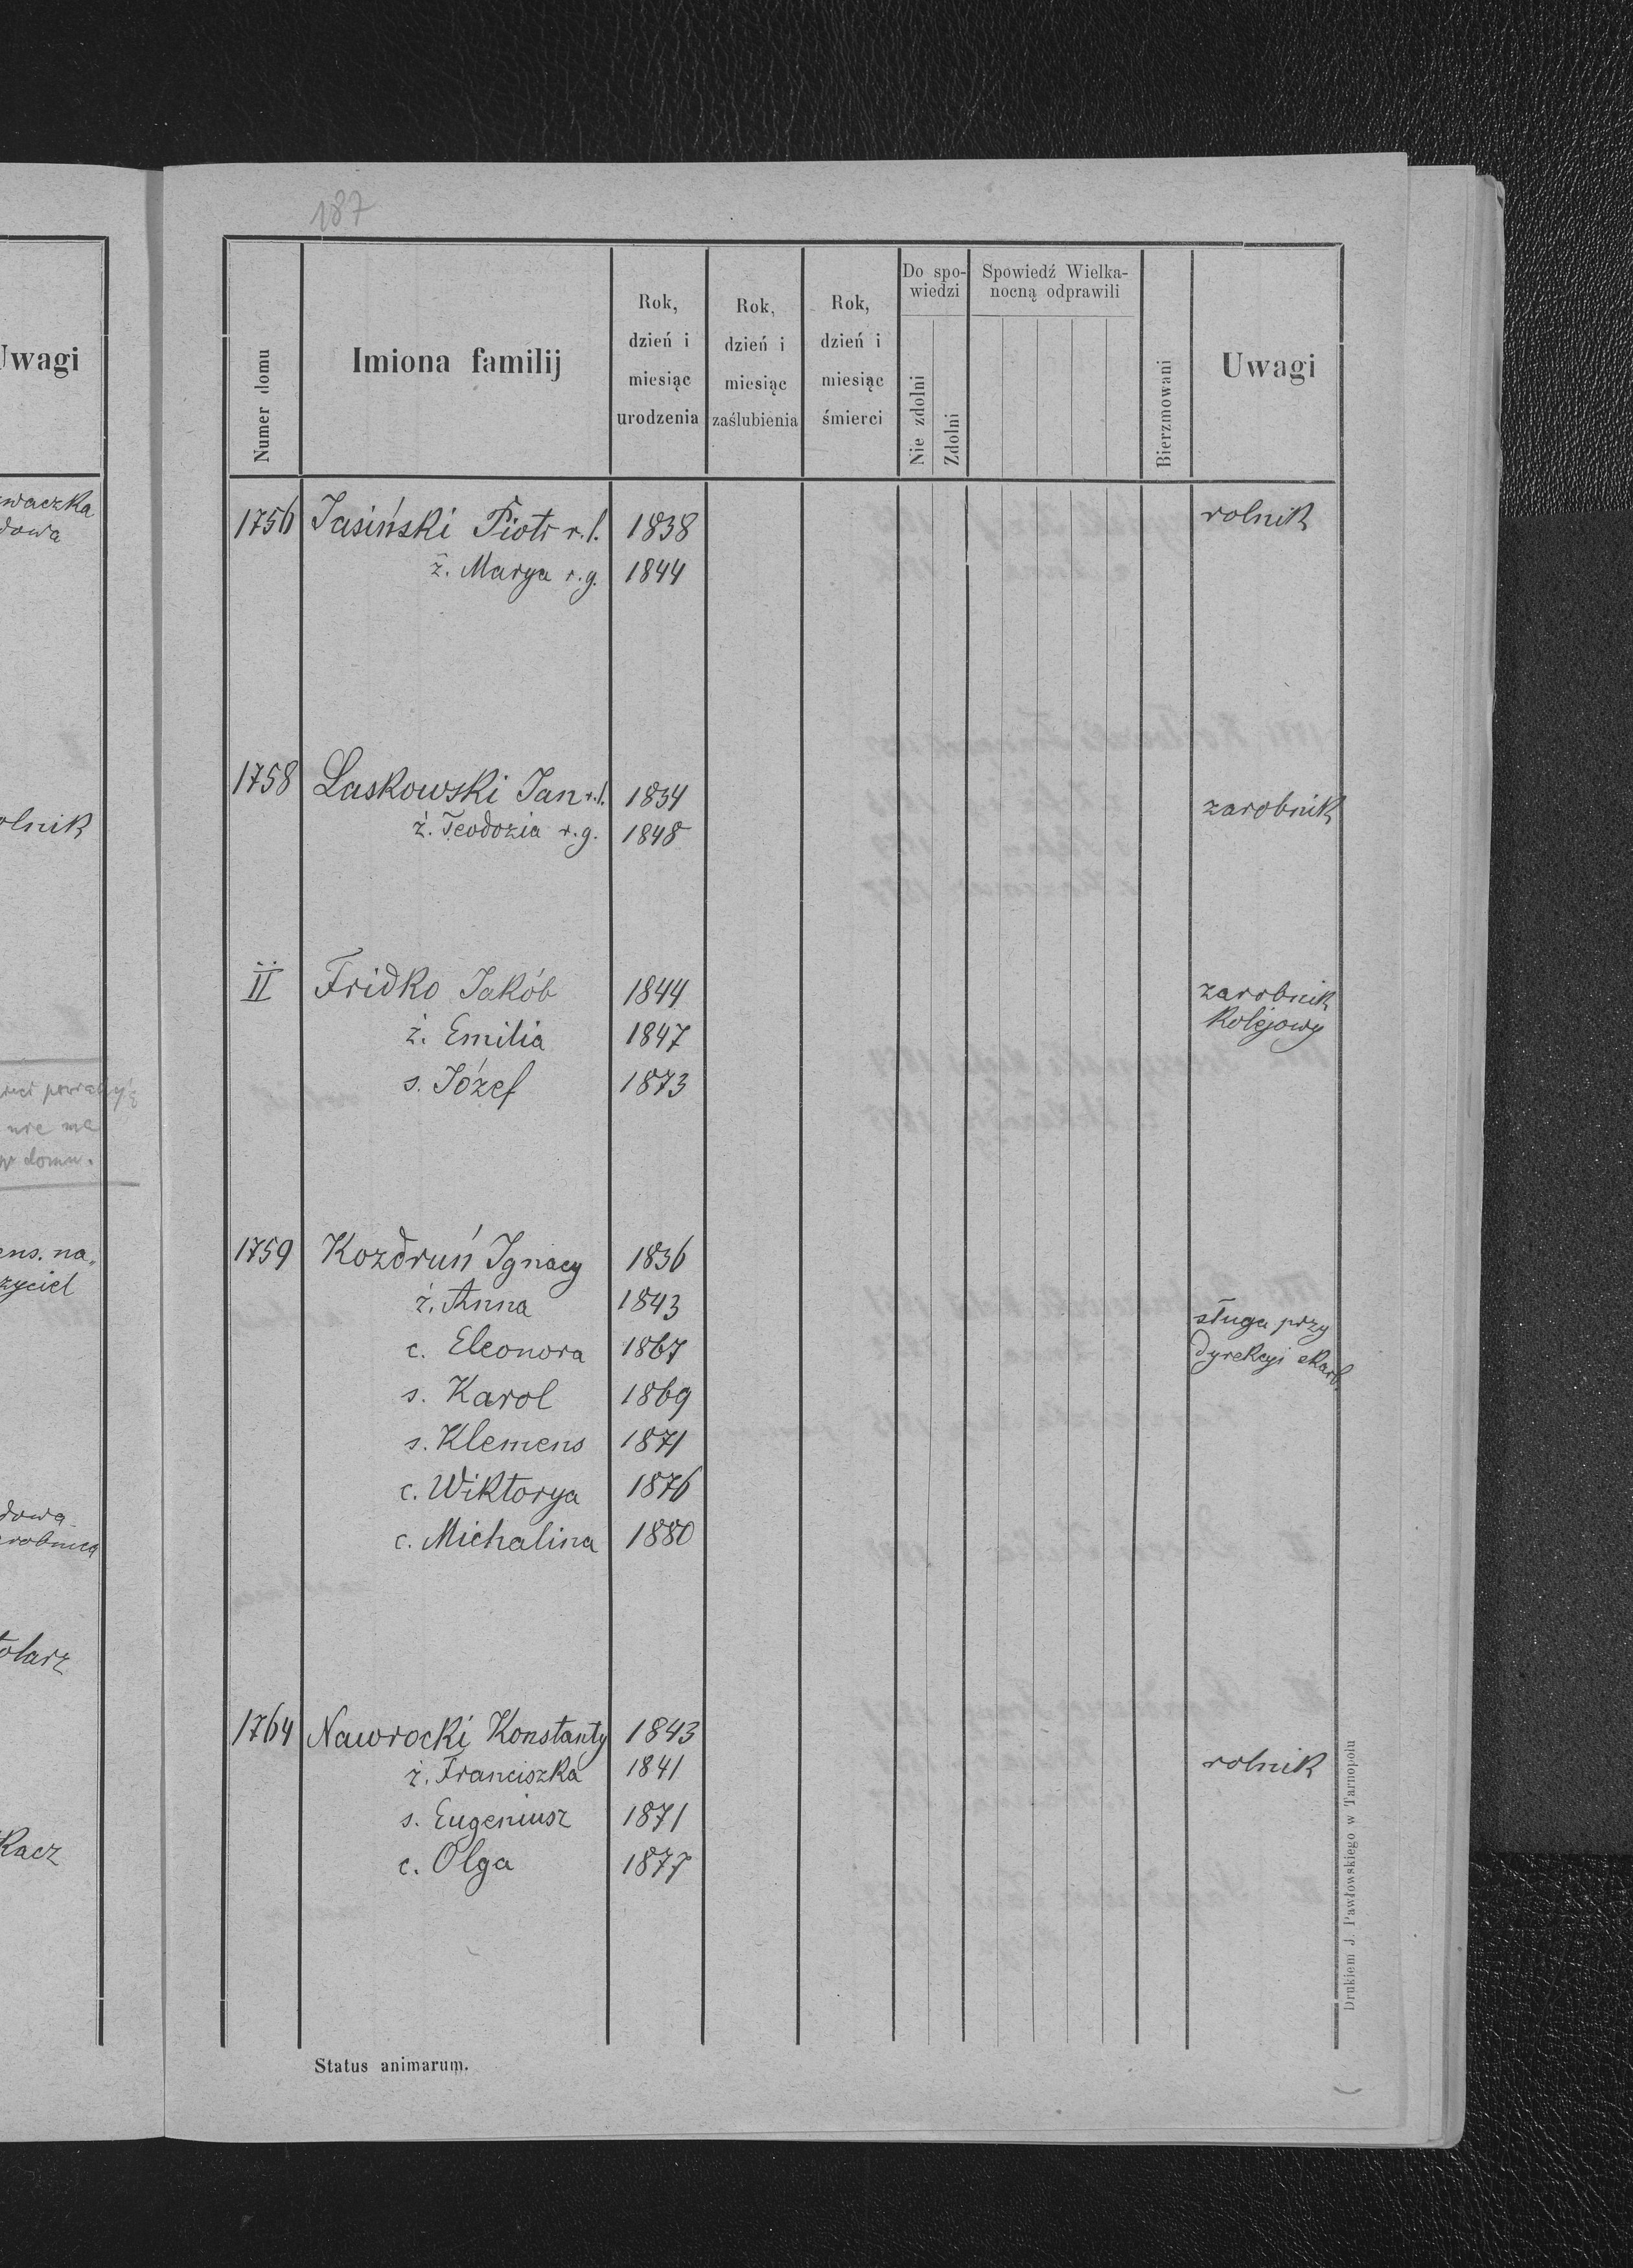 187
Uwagi
Numer domu
Imiona familij
Rok, dzień i miesiąc urodzenia
Rok, dzień i miesiąc zaślubienia
Rok, dzień i miesiąc śmierci
Do spo-
wiedzi
Nie zdolni
Zdolni
Spowiedź Wielka-
nocną odprawili
Bierzmowani
Uwagi
1756 Jasiński Piotr r.l. 1838 rolnik
ż. Marya r.g. 1844
1758 Laskowski Jan r.l. 1834 zarobnik
ż. Teodozia r.g. 1848
II Fridko Jakób 1844 zarobnik
ż. Emilia 1847 kolejowy
s. Józef 1873
1759 Kozdruń Ignacy 1836
ż. Anna 1843 sługa przy
c. Eleonora 1867 dyrekcyi skarb.
s. Karol 1869
s. Klemens 1871
c. Wiktorya 1876
c. Michalina 1880
1764 Nawrocki Konstanty 1843
ż. Franciszka 1841 rolnik
s. Eugeniusz 1871
c. Olga 1877
Status animarum.
Drukiem J. Pawłowskiego w Tarnopolu